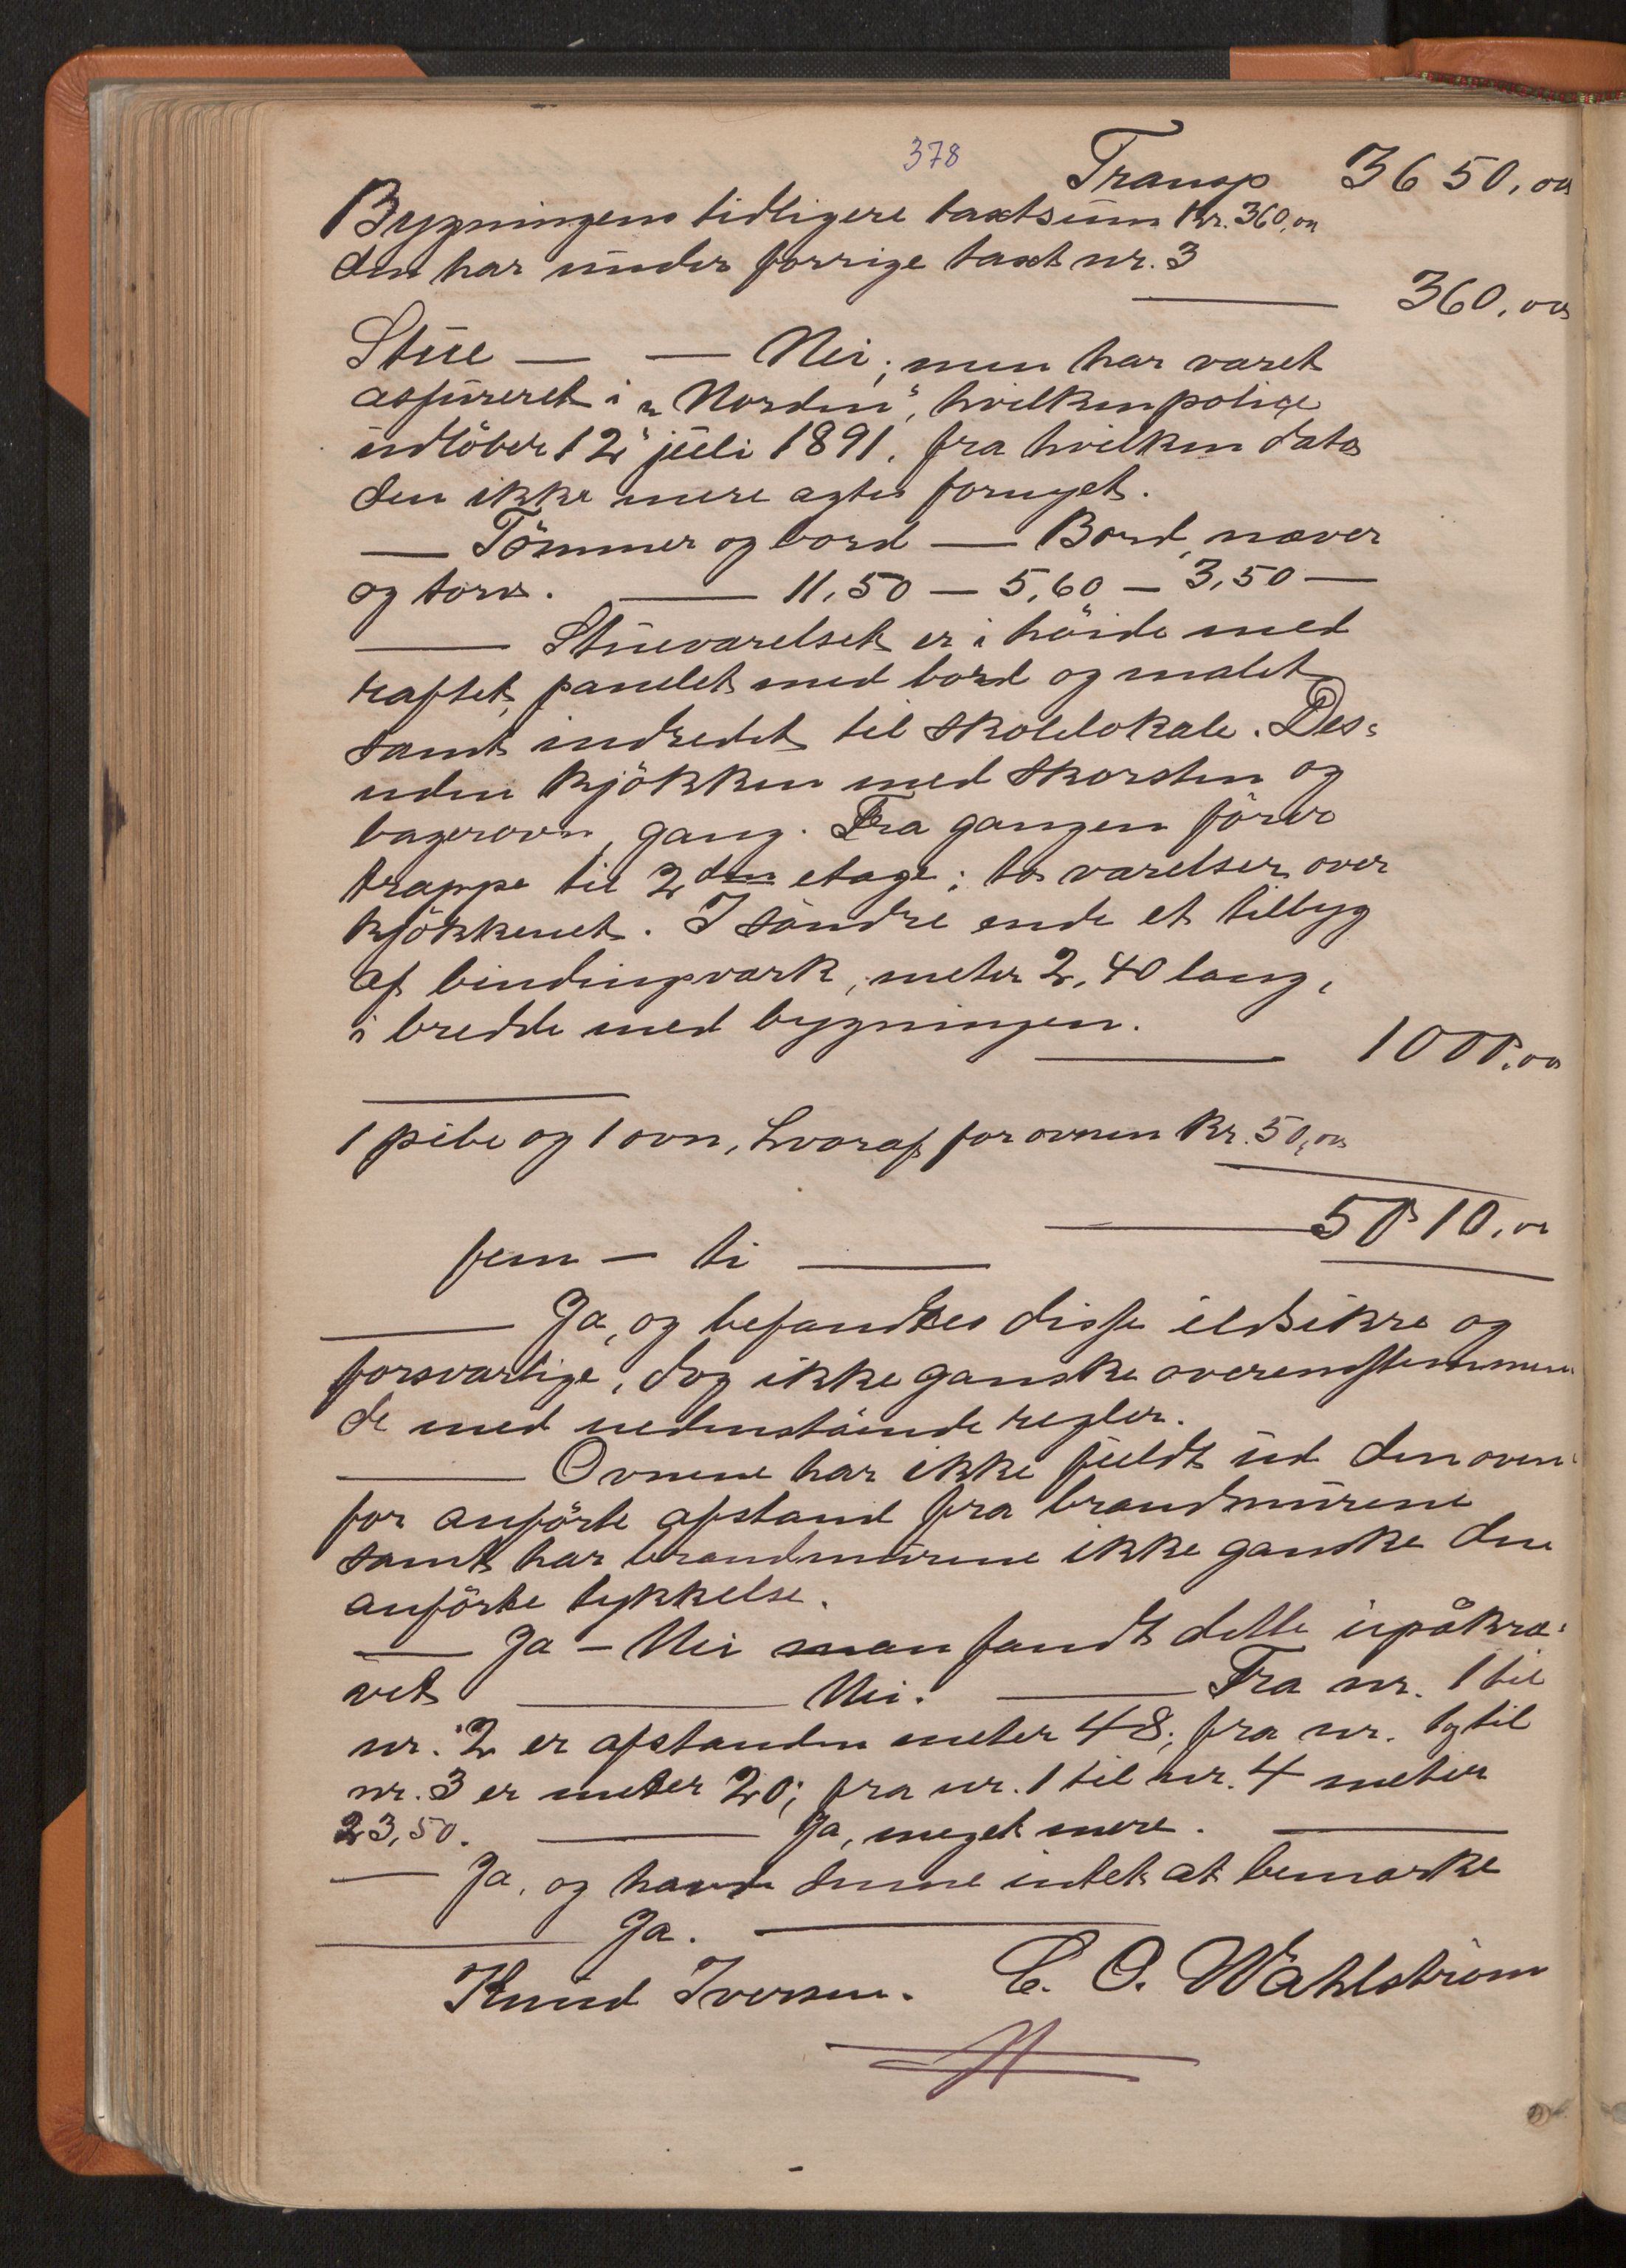 378
Transp 3650,oo
Bygningens tidligere taxtsum Kr. 360,oo
den har under forrige taxt nr. 3
360,oo
Stue — — Nei; men har været
assureret i „Norden", hvilken police
udlöber 12 juli 1891, fra hvilken dato
den ikke mere agtes fornyet.
— Tömmer og bord — Bord, næver
og torv. — 11,50 — 5,60 — 3,50 —
— Stueværelset er i höide med
raftet, panelet med bord og malet
samt indredet til skolelokale. Des-
uden kjökken med skorsten og
bagerovn, gang. Fra gangen förer
trappe til 2den etage; to værelser over
kjökkenet. I söndre ende et tilbyg
af bindingsværk, meter 2,40 lang,
i bredde med bygningen.
— 1000,oo
1 pibe og 1 ovn, hvoraf for ovnen Kr. 50,oo
— 5010,oo
fem — ti —
— Ja, og befandtes disse ildsikre og
forsvarlige, dog ikke ganske overensstemmen-
de med nedenstående regler.
— Ovnene har ikke fuldt ud den oven-
for anförte afstand fra brandmurene
samt har brandmurene ikke ganske den
anförte tykkelse.
— Ja — Nei man fandt dette upåkræ-
vet — Nei. — Fra nr. 1 til
nr. 2 er afstanden meter 48; fra nr. 1 til
nr. 3 er meter 20; fra nr. 1 til nr. 4 meter
23,50. — Ja, meget mere. —
— Ja, og havde denne intet at bemærke
— Ja. —
Knud Iversen. C. O. Wahlström